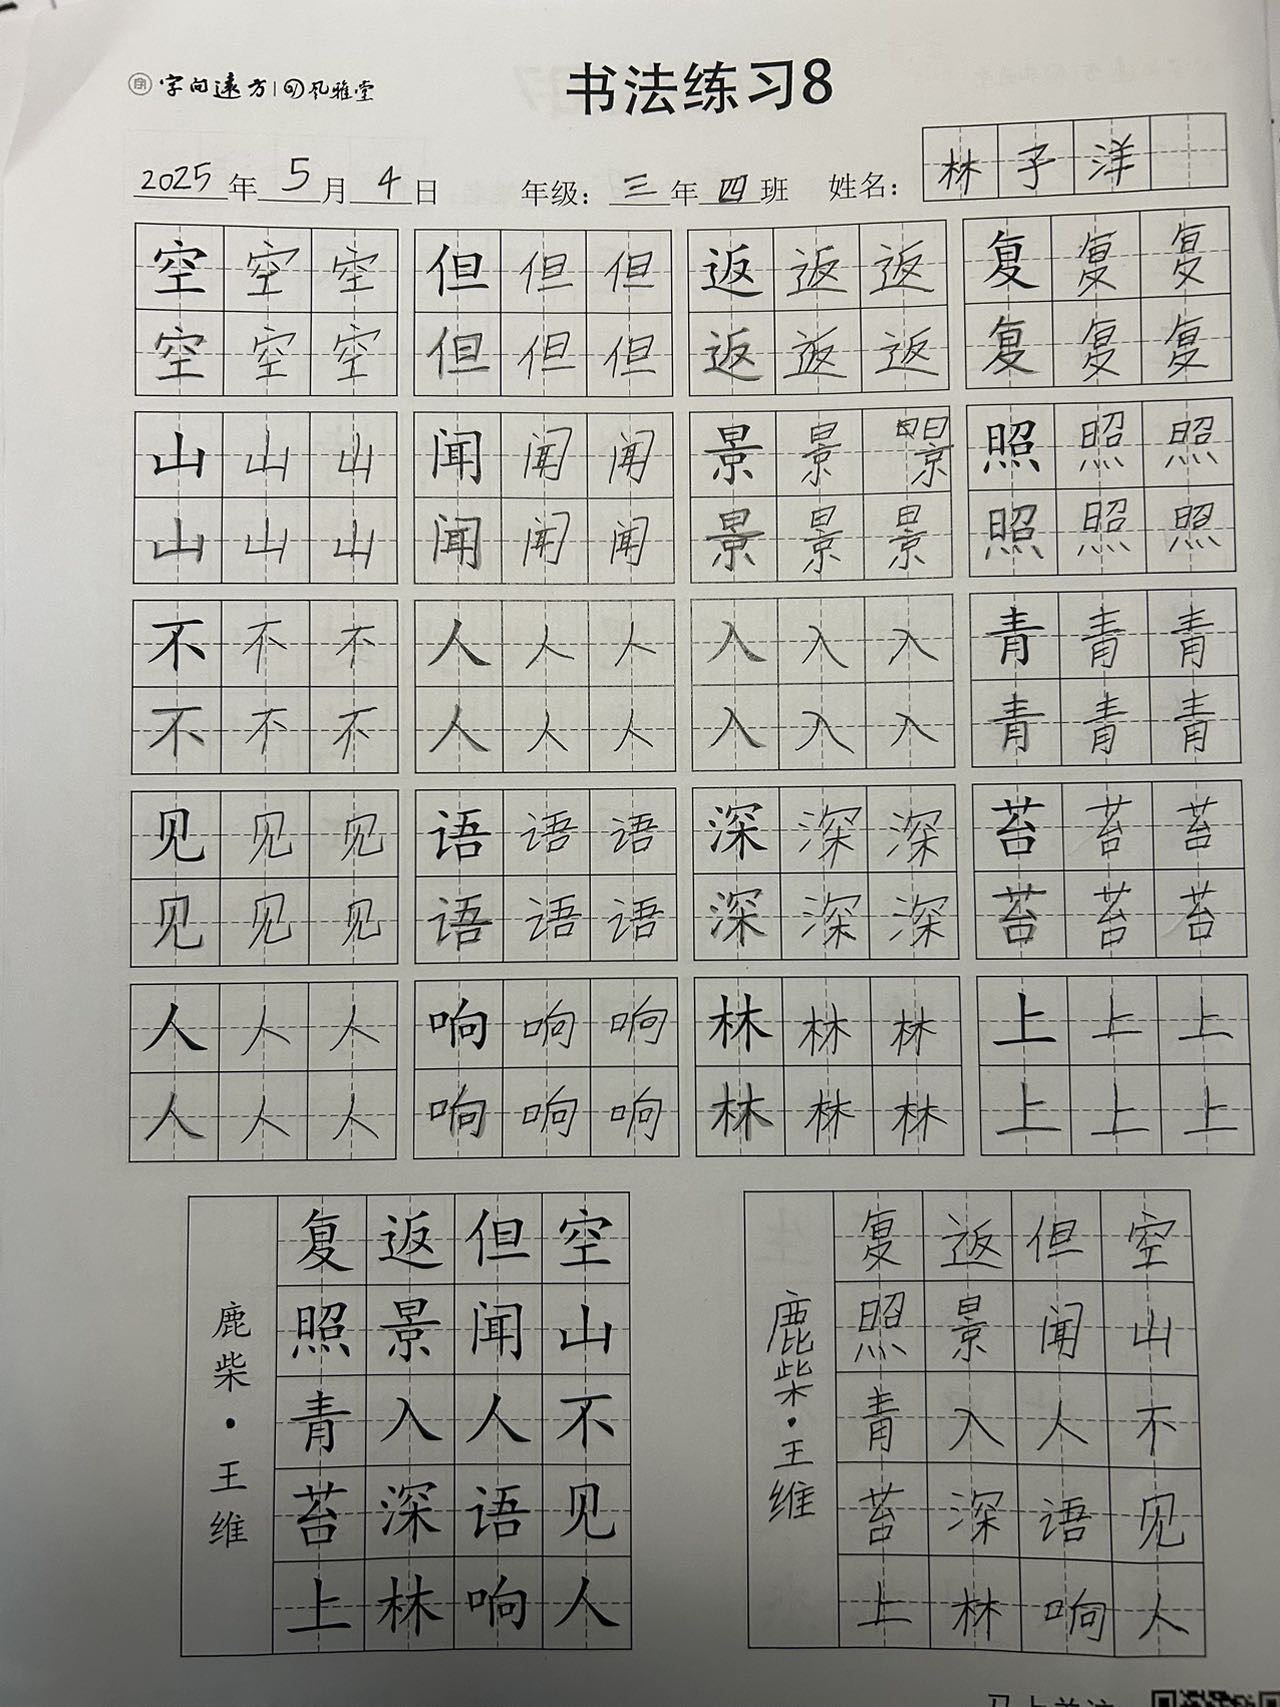 字向远方 风雅堂
书法练习8
2025年5月4日 年级：三年四班 姓名：林子洋
空空空 但但但 返返返 复复复
空空空 但但但 返返返 复复复
山山山 闻闻闻 景景景 照照照
山山山 闻闻闻 景景景 照照照
不不不 人人人 入入入 青青青
不不不 人人人 入入入 青青青
见见见 语语语 深深深 苔苔苔
见见见 语语语 深深深 苔苔苔
人人人 响响响 林林林 上上上
人人人 响响响 林林林 上上上
空山不见人
但闻人语响
返景入深林
复照青苔上
鹿柴·王维
空山不见人
但闻人语响
返景入深林
复照青苔上
鹿柴·王维